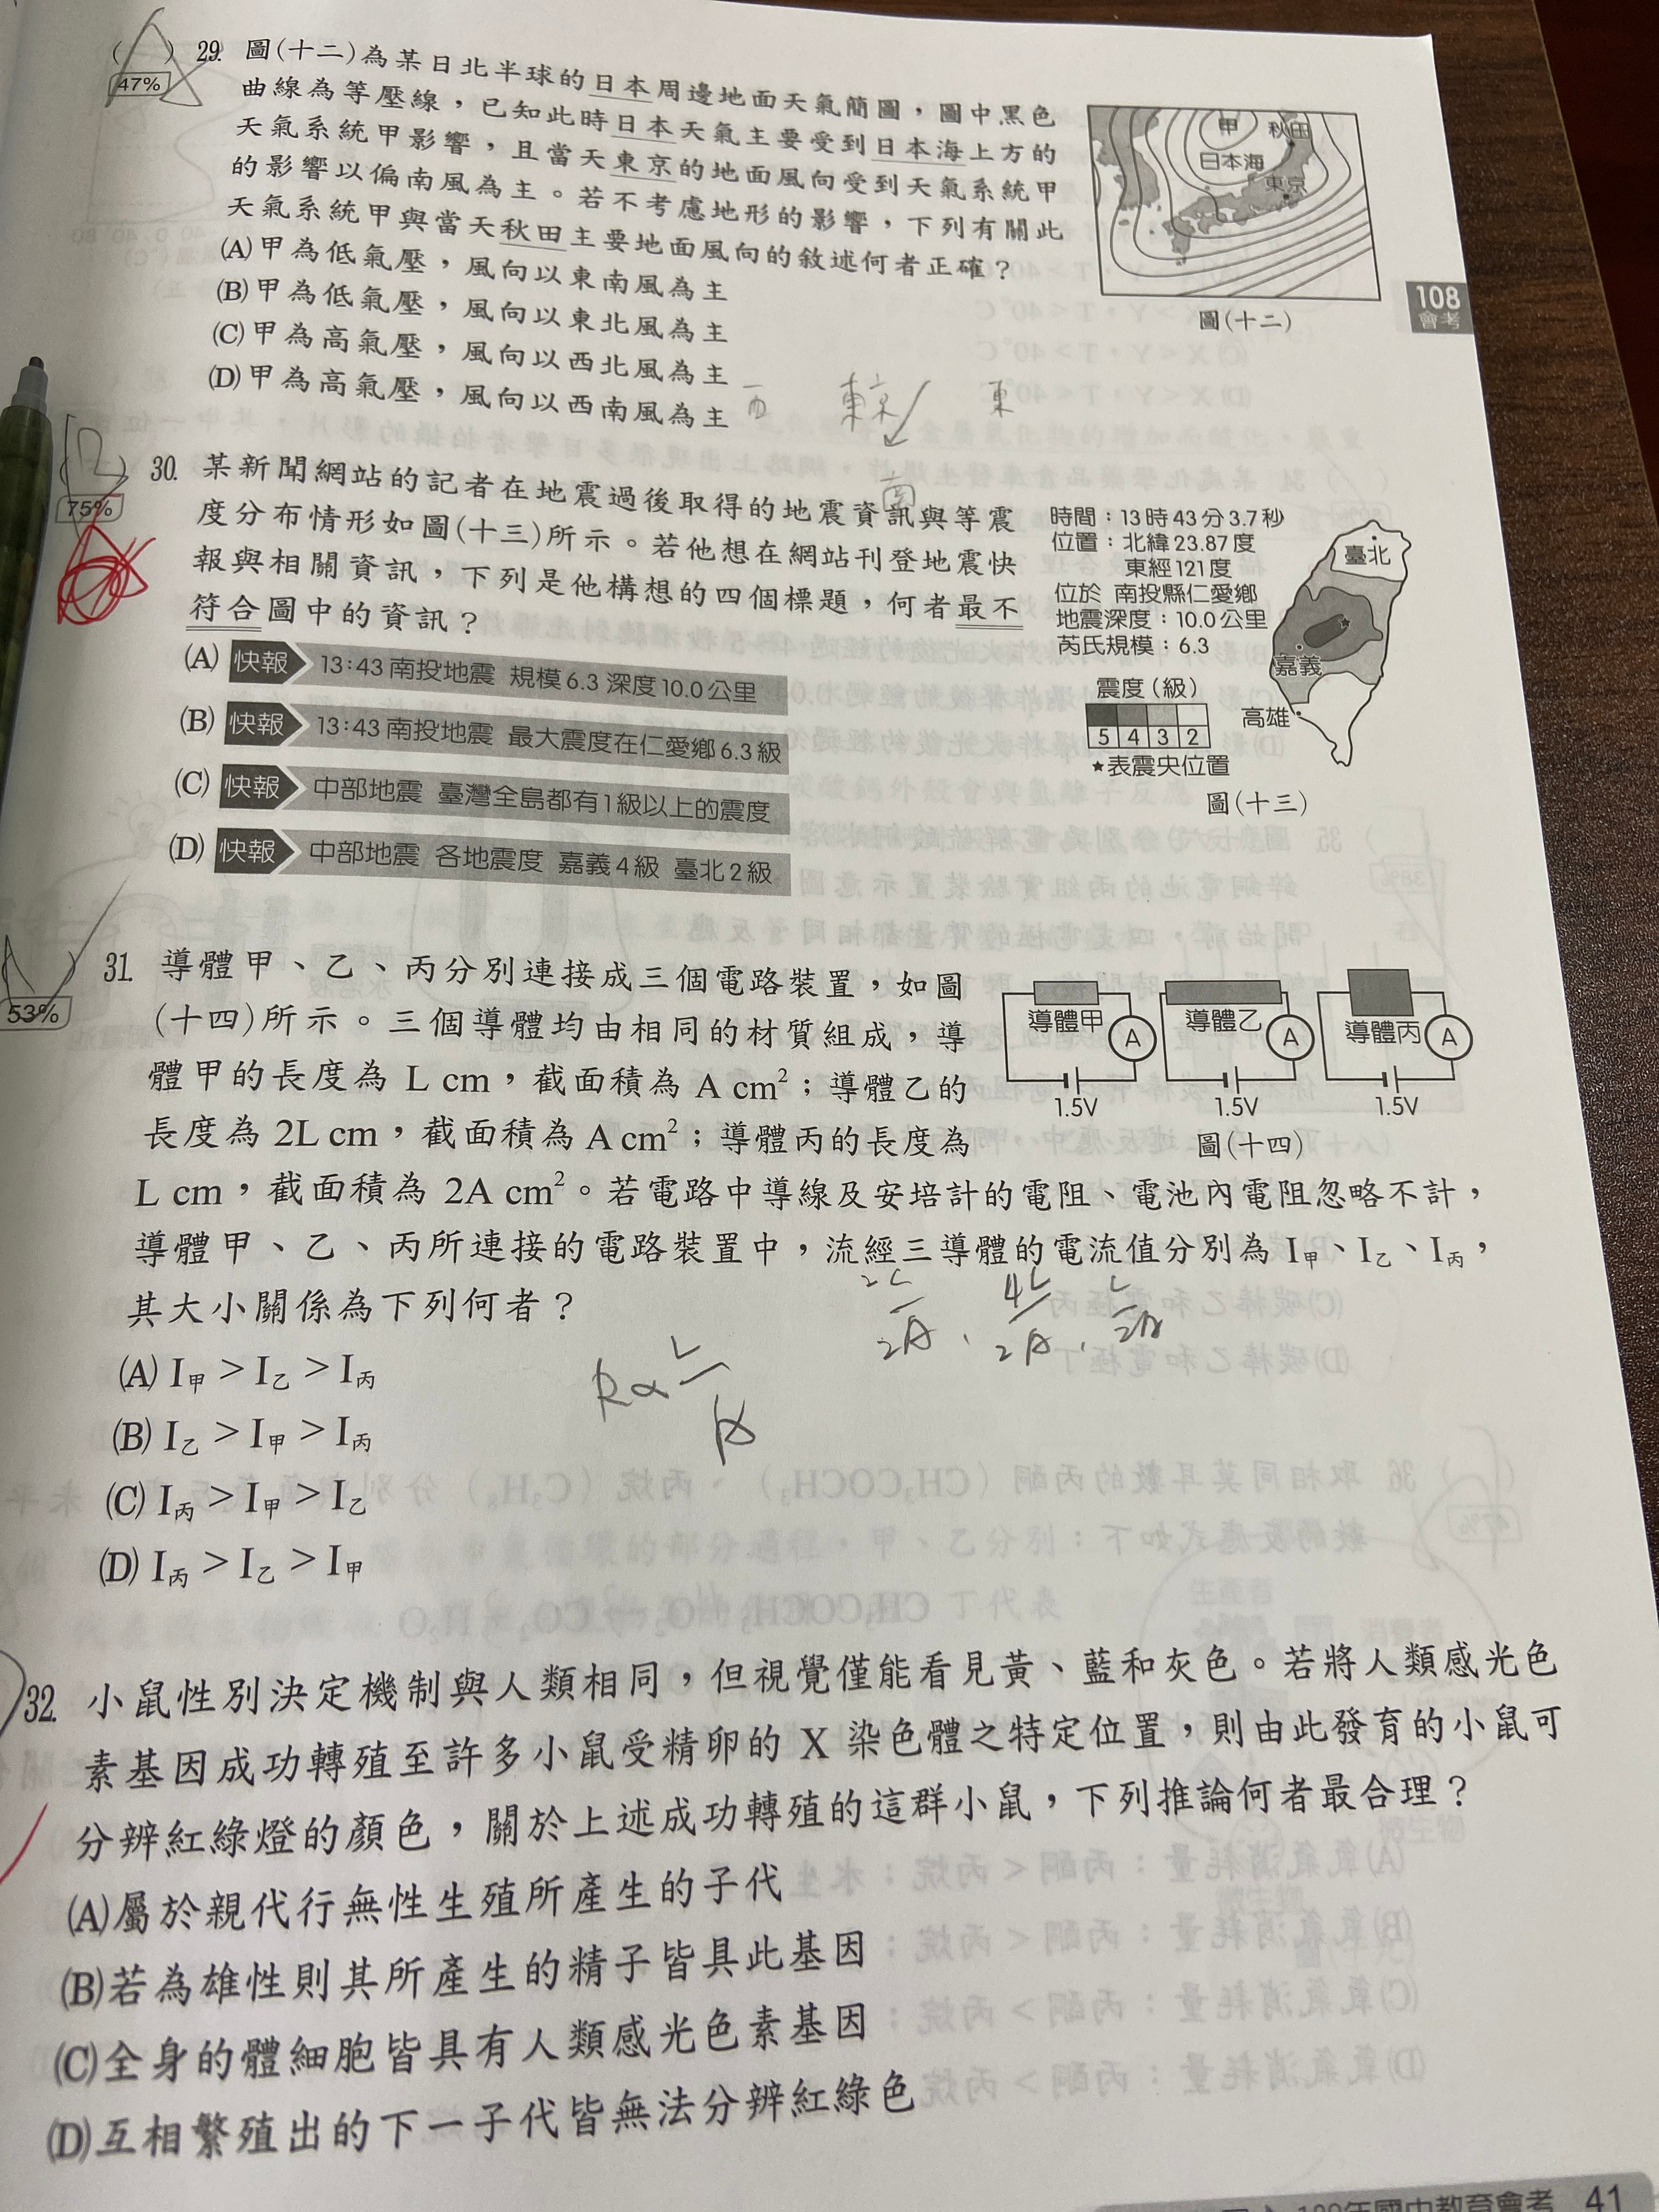 ( ) 29. 圖(十二)為某日北半球的日本周邊地面天氣簡圖，圖中黑色
47%
曲線為等壓線，已知此時日本天氣主要受到日本海上方的
天氣系統甲影響，且當天東京的地面風向受到天氣系統甲
的影響以偏南風為主。若不考慮地形的影響，下列有關此
天氣系統甲與當天秋田主要地面風向的敘述何者正確？
(A)甲為低氣壓，風向以東南風為主
(B)甲為低氣壓，風向以東北風為主
(C)甲為高氣壓，風向以西北風為主
(D)甲為高氣壓，風向以西南風為主
甲 秋田
日本海
東京
圖(十二)
108
會考
西 東京 東
南
( ) 30. 某新聞網站的記者在地震過後取得的地震資訊與等震
75%
度分布情形如圖(十三)所示。若他想在網站刊登地震快
報與相關資訊，下列是他構想的四個標題，何者最不
符合圖中的資訊？
(A) 快報 13:43南投地震 規模6.3 深度10.0公里
(B) 快報 13:43南投地震 最大震度在仁愛鄉6.3級
(C) 快報 中部地震 臺灣全島都有1級以上的震度
(D) 快報 中部地震 各地震度 嘉義4級 臺北2級
時間：13時43分3.7秒
位置：北緯23.87度
東經121度
位於 南投縣仁愛鄉
地震深度：10.0公里
芮氏規模：6.3
震度(級)
5 4 3 2
★表震央位置
臺北
嘉義
高雄
圖(十三)
( ) 31. 導體甲、乙、丙分別連接成三個電路裝置，如圖
53%
(十四)所示。三個導體均由相同的材質組成，導
體甲的長度為 L cm，截面積為 A cm²；導體乙的
長度為 2L cm，截面積為 A cm²；導體丙的長度為
L cm，截面積為 2A cm²。若電路中導線及安培計的電阻、電池內電阻忽略不計，
導體甲、乙、丙所連接的電路裝置中，流經三導體的電流值分別為 I甲、I乙、I丙，
其大小關係為下列何者？
導體甲 A 1.5V
導體乙 A 1.5V
導體丙 A 1.5V
圖(十四)
2L/2A、4L/2A、L/2A
R∝L/A
(A) I甲 > I乙 > I丙
(B) I乙 > I甲 > I丙
(C) I丙 > I甲 > I乙
(D) I丙 > I乙 > I甲
) 32. 小鼠性別決定機制與人類相同，但視覺僅能看見黃、藍和灰色。若將人類感光色
素基因成功轉殖至許多小鼠受精卵的 X 染色體之特定位置，則由此發育的小鼠可
分辨紅綠燈的顏色，關於上述成功轉殖的這群小鼠，下列推論何者最合理？
(A)屬於親代行無性生殖所產生的子代
(B)若為雄性則其所產生的精子皆具此基因
(C)全身的體細胞皆具有人類感光色素基因
(D)互相繁殖出的下一子代皆無法分辨紅綠色
年國中教育會考 41